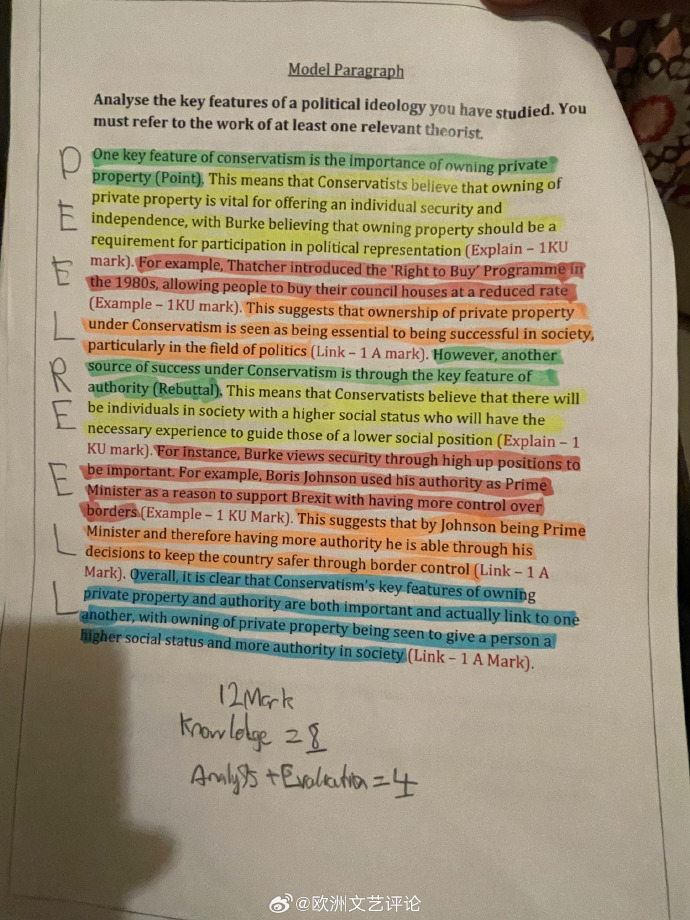 Model Paragraph
Analyse the key features of a political ideology you have studied. You
must refer to the work of at least one relevant theorist.
P
One key feature of conservatism is the importance of owning private
property (Point). This means that Conservatists believe that owning of
private property is vital for offering an individual security and
E
independence, with Burke believing that owning property should be a
requirement for participation in political representation (Explain – 1KU
E
mark). For example, Thatcher introduced the 'Right to Buy' Programme in
the 1980s, allowing people to buy their council houses at a reduced rate
(Example – 1KU mark). This suggests that ownership of private property
L
under Conservatism is seen as being essential to being successful in society,
particularly in the field of politics (Link – 1 A mark). However, another
R
source of success under Conservatism is through the key feature of
authority (Rebuttal). This means that Conservatists believe that there will
E
be individuals in society with a higher social status who will have the
necessary experience to guide those of a lower social position (Explain – 1
KU mark). For instance, Burke views security through high up positions to
E
be important. For example, Boris Johnson used his authority as Prime
Minister as a reason to support Brexit with having more control over
borders (Example – 1 KU Mark). This suggests that by Johnson being Prime
L
Minister and therefore having more authority he is able through his
decisions to keep the country safer through border control (Link – 1 A
Mark). Overall, it is clear that Conservatism's key features of owning
L
private property and authority are both important and actually link to one
another, with owning of private property being seen to give a person a
higher social status and more authority in society (Link – 1 A Mark).
12Mark
Knowledge = 8
Analysis + Evaluation = 4
@欧洲文艺评论